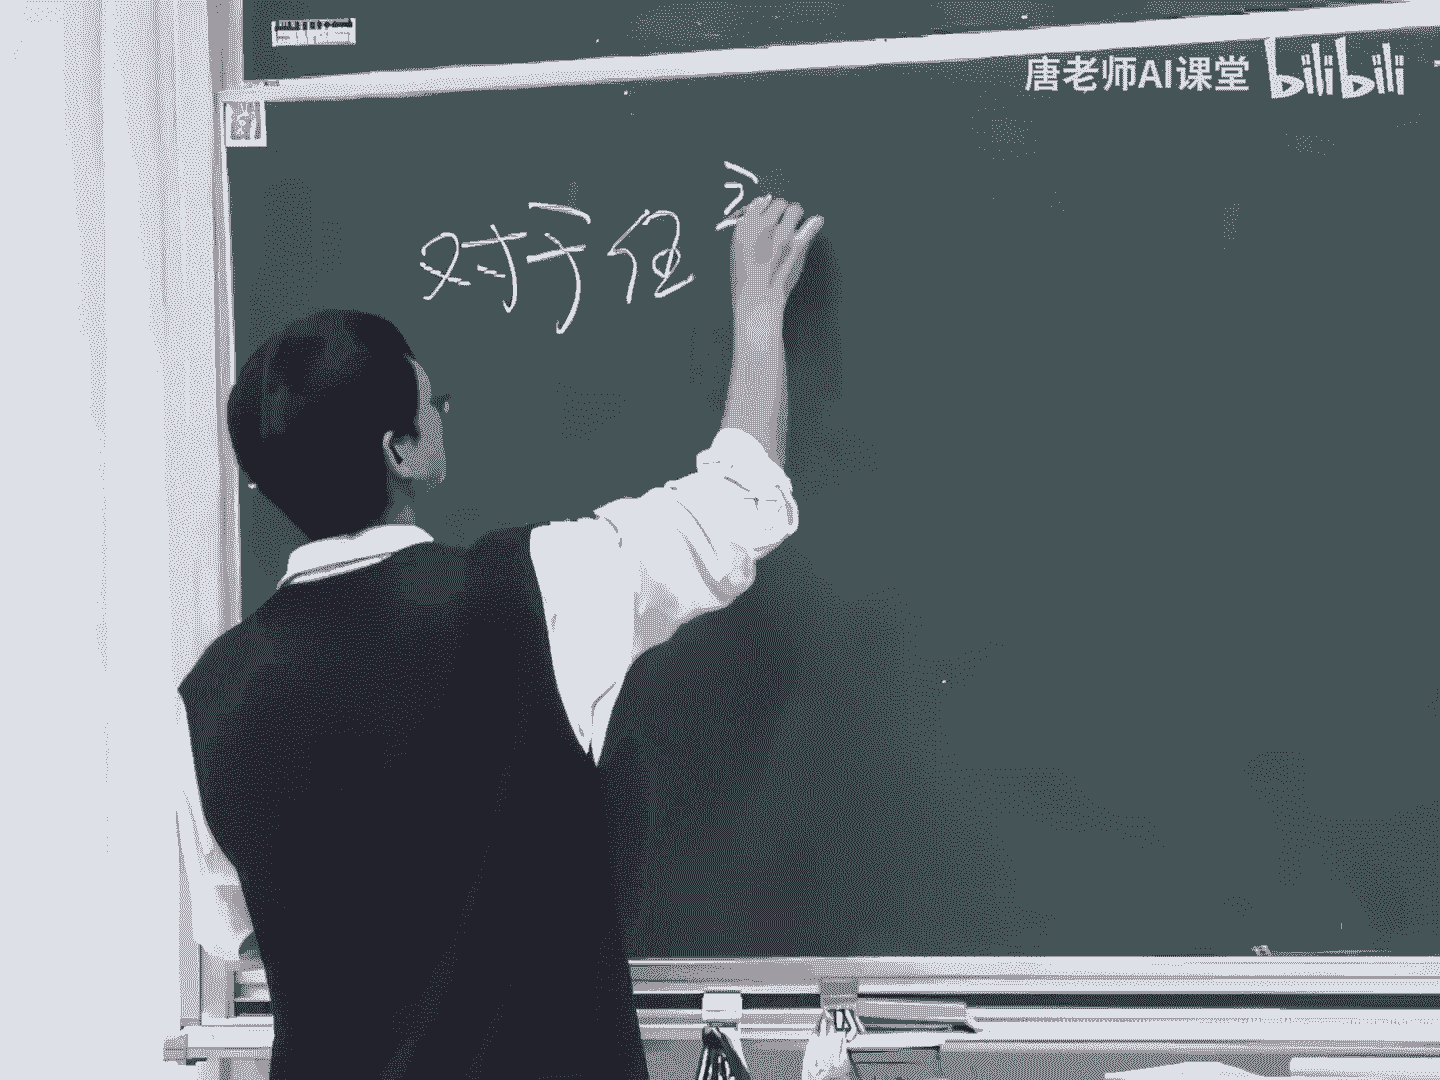 唐老师AI课堂 bilibili
对于任